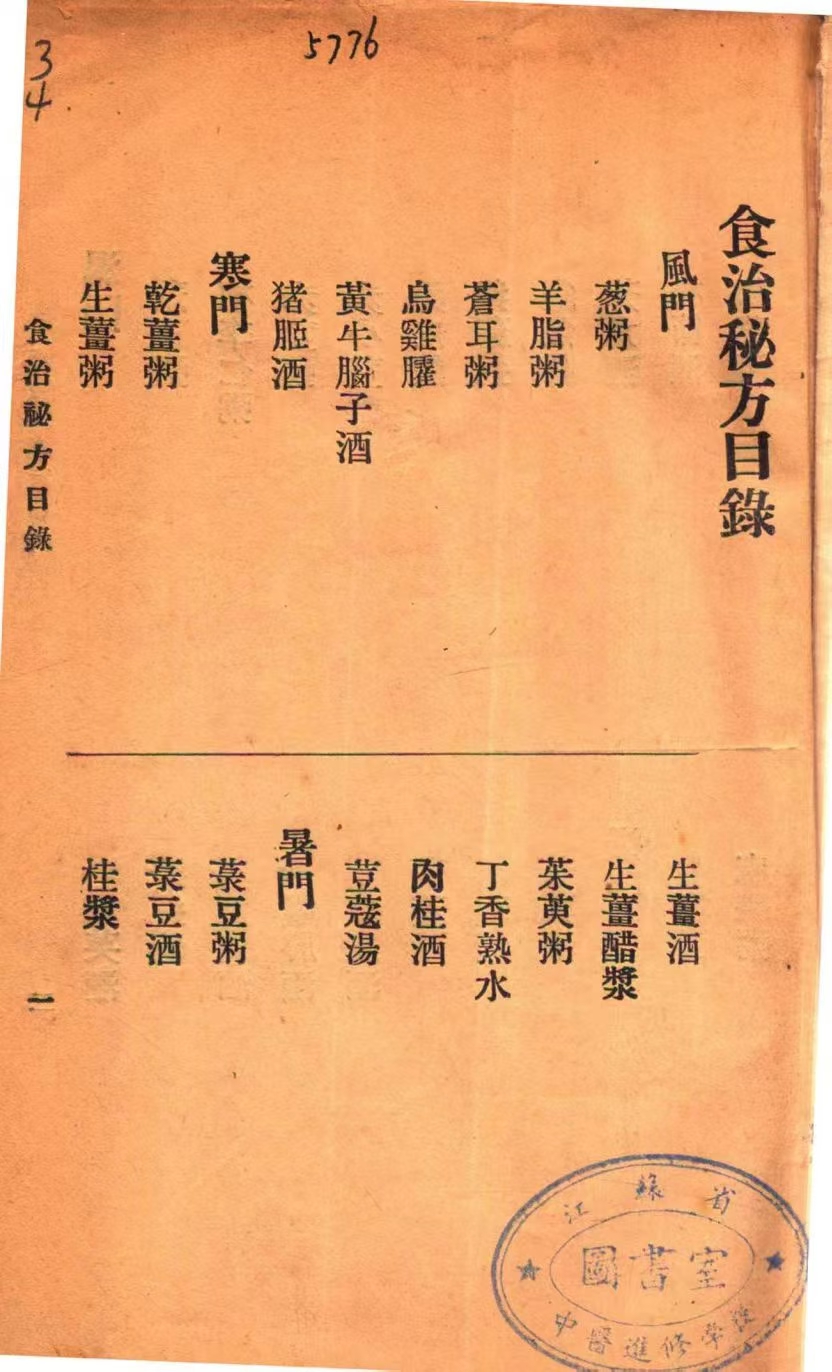 5776
34
食治秘方目錄
風門
葱粥
羊脂粥
蒼耳粥
烏雞臛
黃牛腦子酒
猪脤酒
寒門
乾薑粥
生薑粥
生薑酒
生薑醋漿
茱萸粥
丁香熟水
肉桂酒
荳蔻湯
暑門
菉豆粥
菉豆酒
桂漿
食治祕方目錄
一
江蘇省
圖書室
中醫進修學校